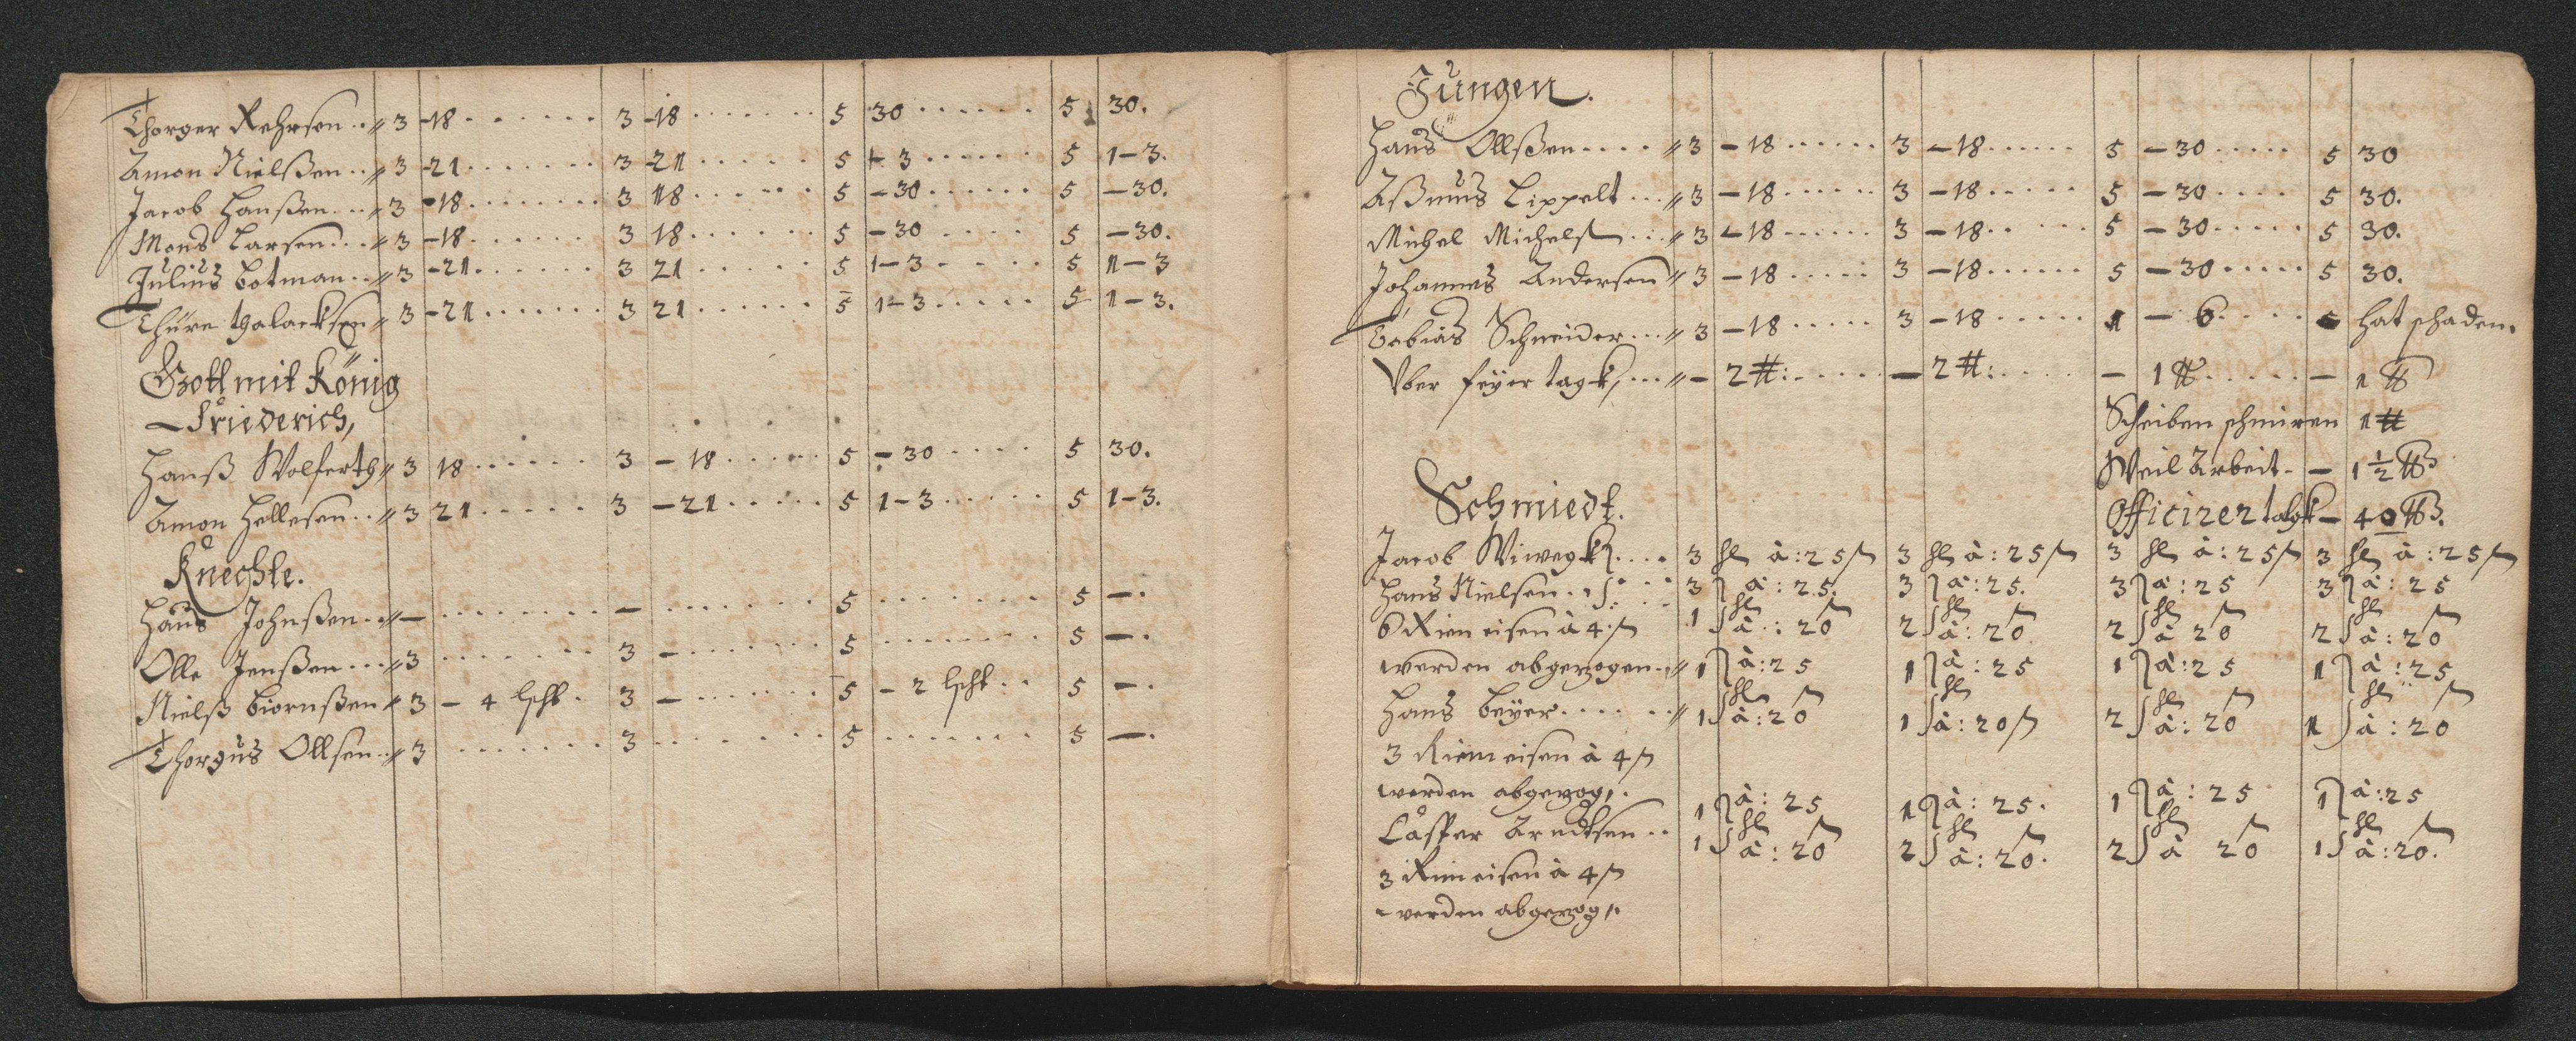 Thorger Rehrsen .. // 3 -18 ....... 3 -18 ....... 5 30 ...... 5 30.
Amon Nielßen .. // 3 -21 ....... 3 -21 ..... 5 1-3 ...... 5 1-3.
Jacob Hanßen ... // 3 -18 ........ 3 18 ...... 5 -30 ...... 5 -30.
Mons Larsen ... // 3 -18 ....... 3 18 ...... 5 -30 .... 5 -30.
Julius Botman .. // 3 -21 ...... 3 21 ..... 5 1-3 ..... 5 1-3
Thure // 3 -21 ....... 3 21 ...... 5 1-3 ..... 5 1-3.
Gott mit König
Friederich,
Hanß Wolferth // 3 18 ...... 3 - 18 ..... 5 -30 .... 5 30.
Amon Hellesen .. // 3 21 ..... 3 -21 ..... 5 1-3 ..... 5 1-3.
Knechte.
Hans Johnßen .. // - ........ - ....... 5 ....... 5 -.
Olle Jenßen ... // 3 ....... 3 - ...... 5 ....... 5 -.
Nielß Biornßen // 3 - 4 schl. 3 - ....... 5 - 2 schl .. 5 -.
Thorgus Ollsen .. // 3 ....... 3 ........ 5 ....... 5 -.
Jungen.
Hans Ollßen .... // 3 -18 ...... 3 -18 ...... 5 -30 ..... 5 30
Aßmus Lippelt ... // 3 -18 ...... 3 -18 ..... 5 -30 .... 5 30.
Michel Michelß ... // 3 -18 ...... 3 -18 ..... 5 -30 ..... 5 30.
Johannes Andersen // 3 -18 ..... 3 -18 ...... 5 -30 ..... 5 30.
Tobias Schneider ... // 3 -18 ..... 3 -18 ..... 1 - 6 .... hat schaden.
Vber feyer tagk, ... // - 2 ₶: ..... - 2 ₶: .... - 1 ₶ ..... - 1 ₶
Scheiben schmiren 1 ₶
Weil Arbeit - - 1 1/2 ₶
Officirer talgk - 40 ₶.
Schmiedt.
Jacob Wiwegk .... 3 hl à: 25 ß 3 hl à: 25 ß 3 hl à: 25 ß 3 hl à: 25 ß
Hans Nielsen .. 3 à: 25. 3 à: 25. 3 à: 25 3 à: 25
hl hl hl hl
6 Rim eisen à 4 ß 1 à: 20 ß 2 à: 20 ß 2 à 20 ß 2 à: 20 ß
werden abgezogen .. // 1 à: 25 1 à: 25 1 à: 25 1 à: 25
hl hl hl hl
Hans Beyer ...... // 1 à: 20 ß 1 à: 20 ß 2 à: 20 ß 1 à: 20 ß
3 Riem eisen à 4 ß
werden abgezog.
1 à: 25 1 à: 25. 1 à: 25 1 à: 25
hl hl hl hl
Casper Arndtsen .. 1 à: 20 ß 2 à: 20 ß. 2 à 20 ß 1 à: 20 ß.
3 Rim eisen à 4 ß
werden abgezog.